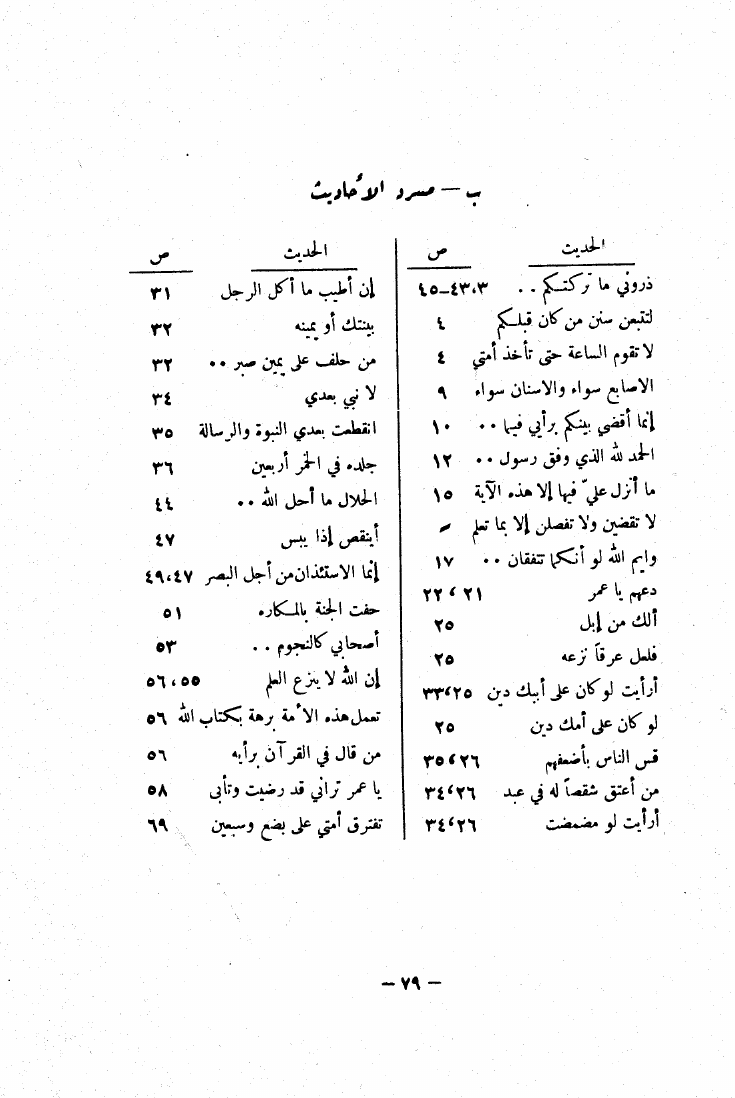 ب — مسرد الأحاديث
الحديث ص
ذروني ما تركتكم . . ٣،٤٣-٤٥
لتتبعن سنن من كان قبلكم ٤
لا تقوم الساعة حتى تأخذ أمتي ٤
الاصابع سواء والاسنان سواء ٩
إنما أقضي بينكم برأيي فيما . . ١٠
الحمد لله الذي وفق رسول . . ١٢
ما أنزل عليّ فيها إلا هذه الآية ١٥
لا تقضين ولا تفصلن إلا بما تعلم
وايم الله لو أنكما تتفقان . . ١٧
دعهم يا عمر ٢١،٢٢
ألك من إبل ٢٥
فلعل عرقاً نزعه ٢٥
أرأيت لو كان على أبيك دين ٢٥،٣٣
لو كان على أمك دين ٢٥
قس الناس بأضعفهم ٢٦،٣٥
من أعتق شقصاً له في عبد ٢٦،٣٤
أرأيت لو مضمضت ٢٦،٣٤
الحديث ص
إن أطيب ما أكل الرجل ٣١
بينتك أو يمينه ٣٢
من حلف على يمين صبر . . ٣٢
لا نبي بعدي ٣٤
انقطعت بعدي النبوة والرسالة ٣٥
جلده في الخمر أربعين ٣٦
الحلال ما أحل الله . . ٤٤
أينقص إذا يبس ٤٧
إنما الاستئذان من أجل البصر ٤٧،٤٩
حفت الجنة بالمكاره ٥١
أصحابي كالنجوم . . ٥٣
إن الله لا ينزع العلم ٥٥،٥٦
تعمل هذه الأمة برهة بكتاب الله ٥٦
من قال في القرآن برأيه ٥٦
يا عمر تراني قد رضيت وتأبى ٥٨
تفترق أمتي على بضع وسبعين ٦٩
— ٧٩ —